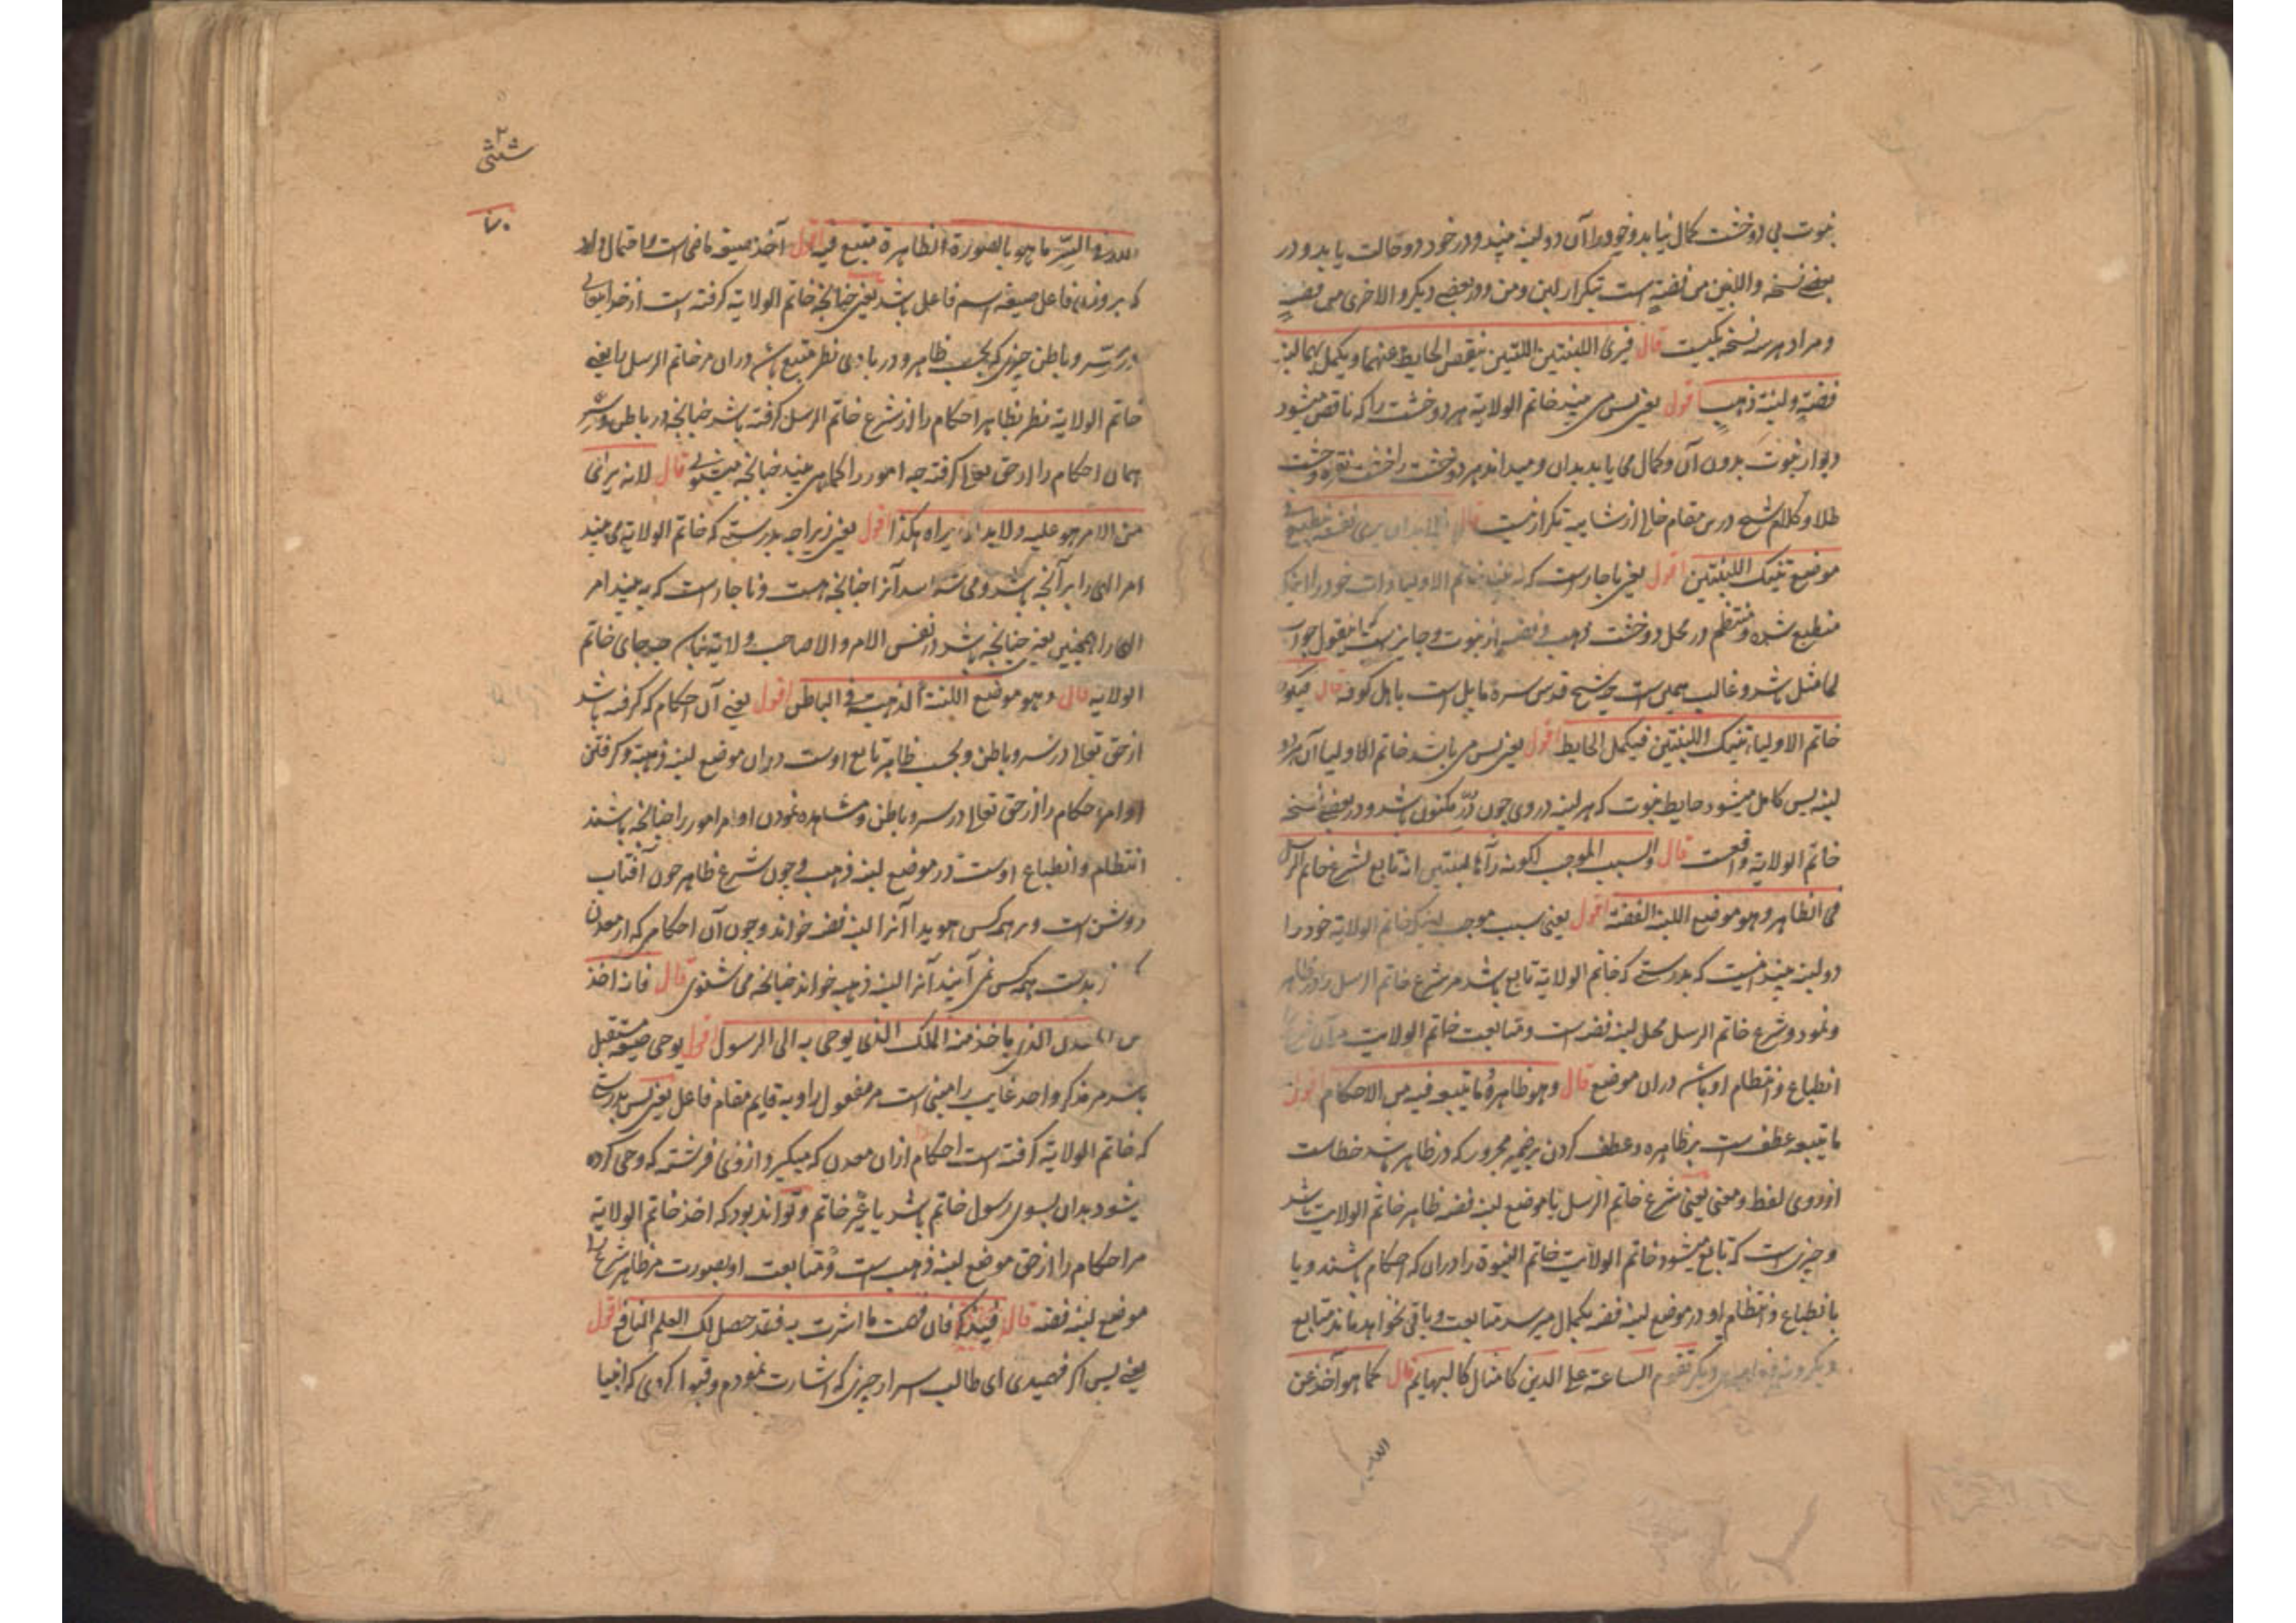 نبوت بی دو خشت کمال نیابد و خود را آن دو لبنه بیند و در خود دو حالت یابد و در
بعضے نسخه واللبن من فضة است بتکرار لبن و من و در بعضے دیگر والاخری من فضة
و مراد هر سه نسخه یکیست قال فیری اللبنتین اللتین ینقص الحایط عنهما و یکمل بهما لبنة
فضة و لبنة ذهب اقول یعنی پس می بیند خاتم الولایة هر دو خشت را که ناقص میشود
دیوار نبوت بدون آن و کمال می یابد بدان و میداند هر دو خشت را خشت نقره و خشت
طلا و کلام شیخ درین مقام خالی از شایبه تکرار نیست قال فلا بد ان یری نفسه تنطبع فی
موضع تینک اللبنتین اقول یعنی ناچار است که به بیند خاتم الاولیا ذات خود را
منطبع شده و منتظم در محل دو خشت ذهب و فضه از نبوت و جایز است
لما مثل باشد و غالب همین است چه شیخ قدس سره مایل است باهل کوفه قال فیکون
خاتم الاولیاء تینک اللبنتین فیکمل الحایط اقول یعنی پس می باشد خاتم الاولیا آن هر دو
لبنه پس کامل میشود حایط نبوت که هر لبنه در وی چون درّ مکنون باشد و در بعضے نسخه
خاتم الولایة واقعست قال والسبب الموجب لکونه رآها لبنتین انه تابع لشرع خاتم الرسل
فی الظاهر و هو موضع اللبنة الفضة اقول یعنی سبب موجب اینکه خاتم الولایة خود را
دو لبنه بیند اینست که بدرستے که خاتم الولایة تابع باشد مر شرع خاتم الرسل را در ظاهر
و نمود و شرع خاتم الرسل محل لبنه فضه است و متابعت خاتم الولایت مر آن شرع را
انطباع و انتظام او باشد دران موضع قال و هو ظاهره و ما یتبعه فیه من الاحکام اقول
ما یتبعه عطف است بر ظاهره و عطف کردن بر ضمیر مجرور که در ظاهر باشد خطاست
از روی لفظ و معنی یعنی شرع خاتم الرسل یا موضع لبنه فضه ظاهر خاتم الولایت باشد
و چیزی است که تابع میشود خاتم الولایت خاتم النبوة را دران که احکام باشند و یا
بانطباع و انتظام او در موضع لبنه فضه بکمال میرسد متابعت و باقی نخواهد ماند متابع
دیگر تقوم الساعة علے الدین کامثال کالبهایم قال کما هو آخذ عن
الله
۷۰
الله فی السّر ما هو بالصورة الظاهرة متبع فیه اقول آخذ صیغه ماضی است و احتمال دارد
که بر وزن فاعل صیغه اسم فاعل باشد یعنی چنانچه خاتم الولایة گرفته است از خدا تعالی
در سرّ و باطن چیزی که بحسب ظاهر و در بادی نظر متبع باشد دران مر خاتم الرسل را یعنی
خاتم الولایة نظر بظاهر احکام را از شرع خاتم الرسل گرفته باشد چنانچه در باطن و سرّ
همان احکام را از حق تعالی گرفته چه امور را کما هی می بیند چنانچه میشنوی قال لانه یری
الامر هو علیه و لا بد ان یراه هکذا اقول یعنی زیراچه بدرستے که خاتم الولایة می بیند
امر الهی را بر آنچه باشد و می شناسد آنرا چنانچه هست و ناچار است که به بیند امر
الهی را همچنین یعنی چنانچه باشد در نفس الامر و الا صاحب ولایة نباشد چه جای خاتم
الولایة قال و هو موضع اللبنة الذهبیة فی الباطن اقول یعنے آن احکام که گرفته باشد
از حق تعالی در سر و باطن و بحسب ظاهر تابع اوست دران موضع لبنه ذهبیة و گرفتن
او امر احکام را از حق تعالی در سر و باطن و مشاهده نمودن او امر امور را چنانچه باشند
انتظام و انطباع اوست در موضع لبنه ذهب و چون شرع ظاهر چون آفتاب
روشن است و بر همه کس هویدا آنرا لبنه فضه خواند و چون آن احکام که از معدن
زبدست همه کس نمی آیند آنرا لبنه ذهبیه خواند چنانچه می شنوی قال فانه اخذ
من المعدن الذی یاخذ منه الملک الذی یوحی به الی الرسول اقول یوحی صیغه مستقبل
باشد مر مذکر واحد غایب را مبنی است مر مفعول را و به قایم مقام فاعل یعنی پس بدرستے
که خاتم الولایة گرفته است احکام ازان معدن که میگیرد ازوی فرشته که وحی کرده
میشود بدان بسوی رسول خاتم باشد یا غیر خاتم و تواند بود که اخذ خاتم الولایة
مر احکام را از حق موضع لبنه ذهب است و متابعت او بصورت مر ظاهر شرع را
موضع لبنه فضه قال فان فهمت ما اشرت به فقد حصل لک العلم النافع اقول
یعنے پس اگر فهمیدی ای طالب اسرار چیزی که اشارت نمودم و قبول کردی که انبیا